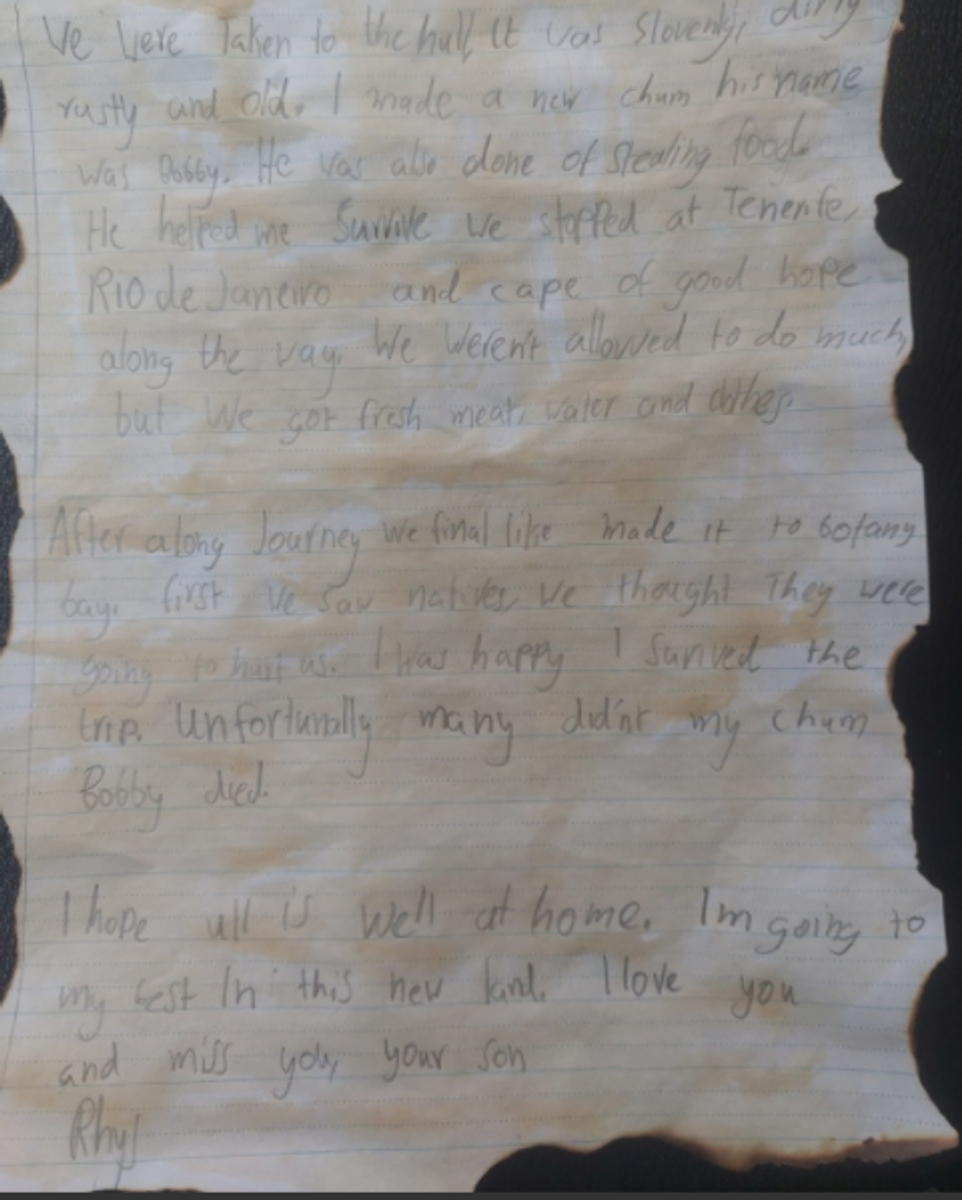 We were taken to the hull it was Slovenly, dirty
rusty and old. I made a new chum his name
was Bobby. He was also done of Stealing food.
He helped me Survive we stopped at Tenerife,
RIO de Janeiro and cape of good hope
along the way. We weren't allowed to do much,
but We got fresh meat, water and clothes.
After along Journey we final like made it to botany
bay. first we saw natives, we thought They were
going to hurt us. I was happy I Surived the
trip. Unfortunally many didn't my chum
Bobby died.
I hope all is well at home. Im going to
my best In this new land. I love you
and miss you, your son
Rhys